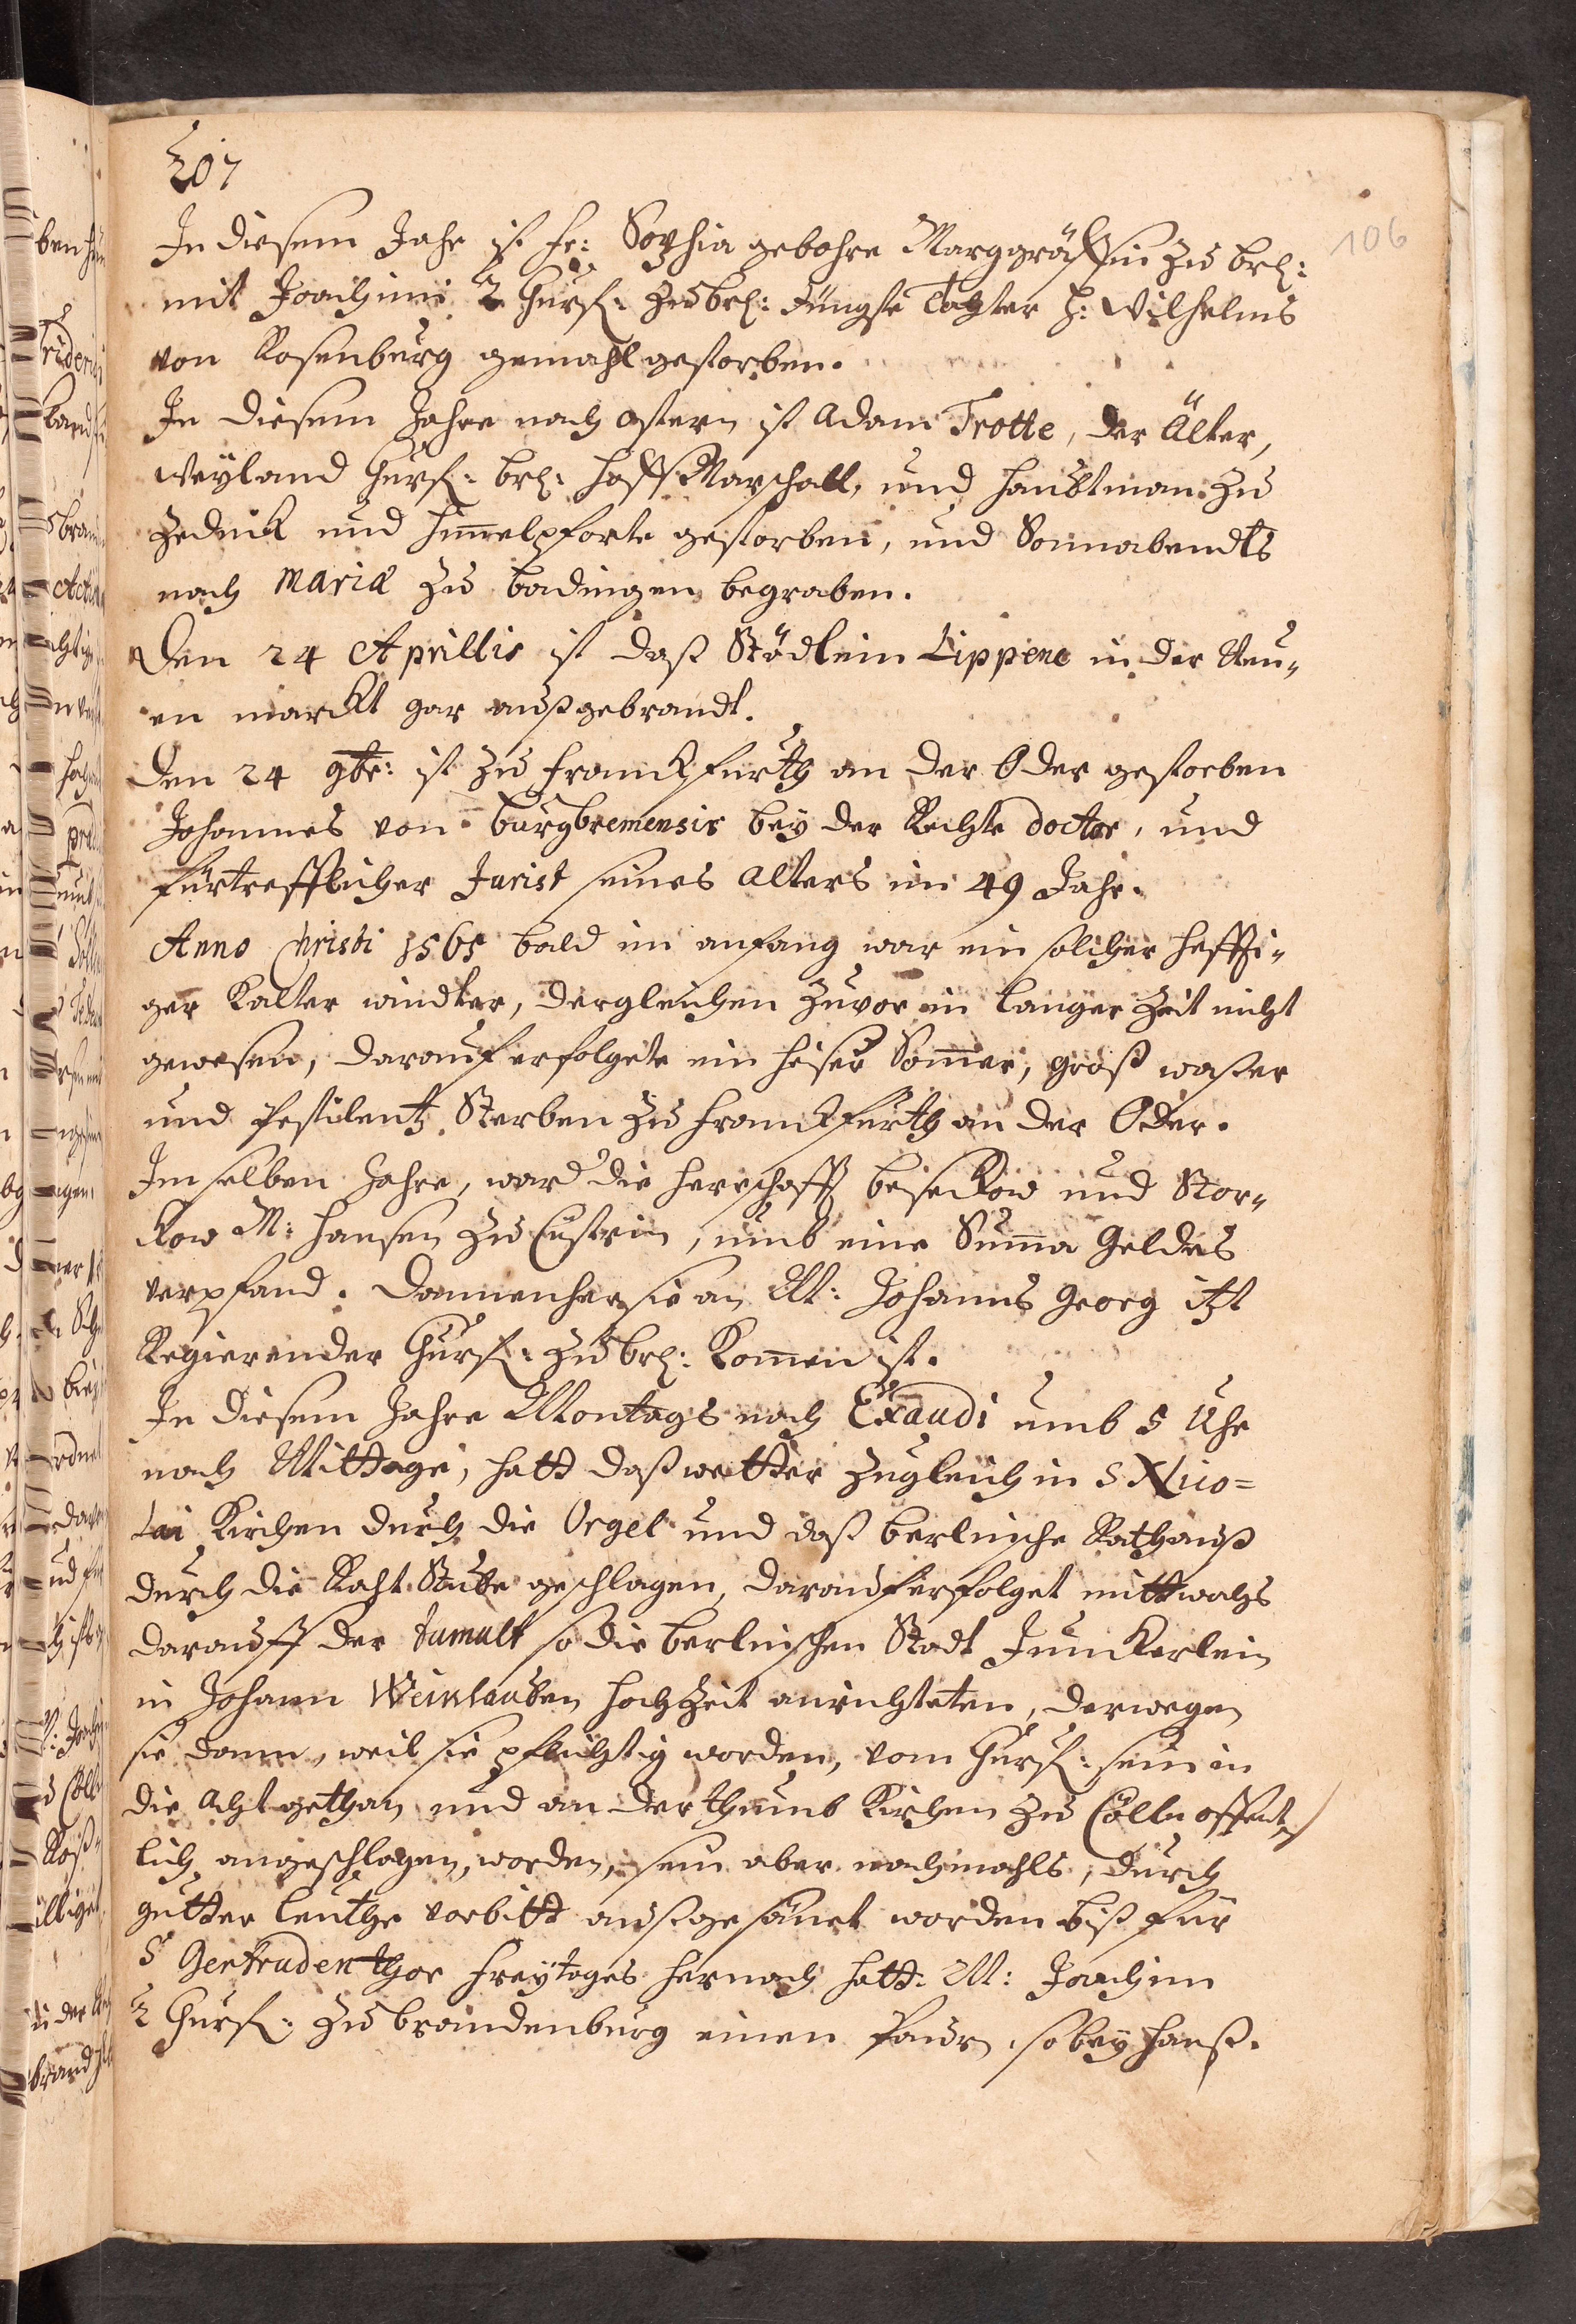 207
106
In diesem Jahr ist Fr: Sophia gebohre Marggräffin zu brl:
mit Joachimi 2 Churf: zu brl: Jüngste Tochter H: Wilhelms
von Rosenburg gemahl gestorben.
In diesem Jahre nach ostern ist Adam Trotte, der Älter,
weyland Churf: brl: Hoff Marschall, und Haubtman zu
Zednick und Himelpforte gestorben, und Sonnabendts
nach Mariæ zu badingen begraben.
Den 24 Aprillis ist daß Städlein Lippene in der Neu„
en marckt gar außgebrandt.
Den 24 9br: ist zu Franckfurth an der Oder gestorben
Johannes von burgbremensis bey der Rechte doctor, und
fürtrefflicher Jurist seines alters im 49 Jahr.
Anno Christi 1565 bald im anfang war ein solcher hefffti„
ger Kalter windter, dergleichen zuvor in langer Zeit nicht
gewesen, darauf erfolgete ein heiser Somer, groß waßer
und Pestilentz Sterben zu Franckfurth an der Oder.
Im selben Jahre, ward die Herrschafft beseckow und Stor„
kow M: Hansen zu Cüstrin, umb eine Suma Geldes
verpfand. Dannenher sie an M: Johanns Georg itzt
Regierender Churf: zu brl: Komen ist.
In diesem Jahre Montags nach Exaudi umb 5 Uhr
nach Mittage, hatt daß wetter zugleich in S Nico=
lai Kirchen durch die Orgel und daß berlinsche Rathauß
durch die Raht Stube geschlagen, darauf erfolget mittwochs
darauff der tumult so die berlinschen Stadt Junckerlein
in Johann Weinlauben hochzeit anrichteten, derwegen
sie dann, weil sie pflichtig worden, vom Churf: sein in
die acht gethan und an der thumb Kirchen zu Cölln offent„
lich angeschlagen, worden, sein aber nachmahls, durch
gutter leuthe vorbitt außgesönet worden biß für
S Gertruden thor Freytages hernach hatt M: Joachim
2 Churf: zu brandenburg einen Paur so bey Hanß.